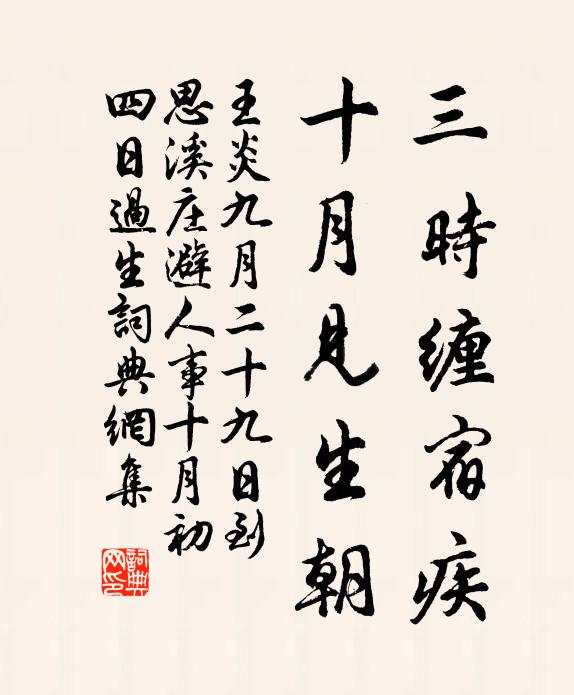 三時纏宿疾
十月見生朝
王炎九月二十九日到
思溪庄避人事十月初
四日過生詞典網集
詞典網印